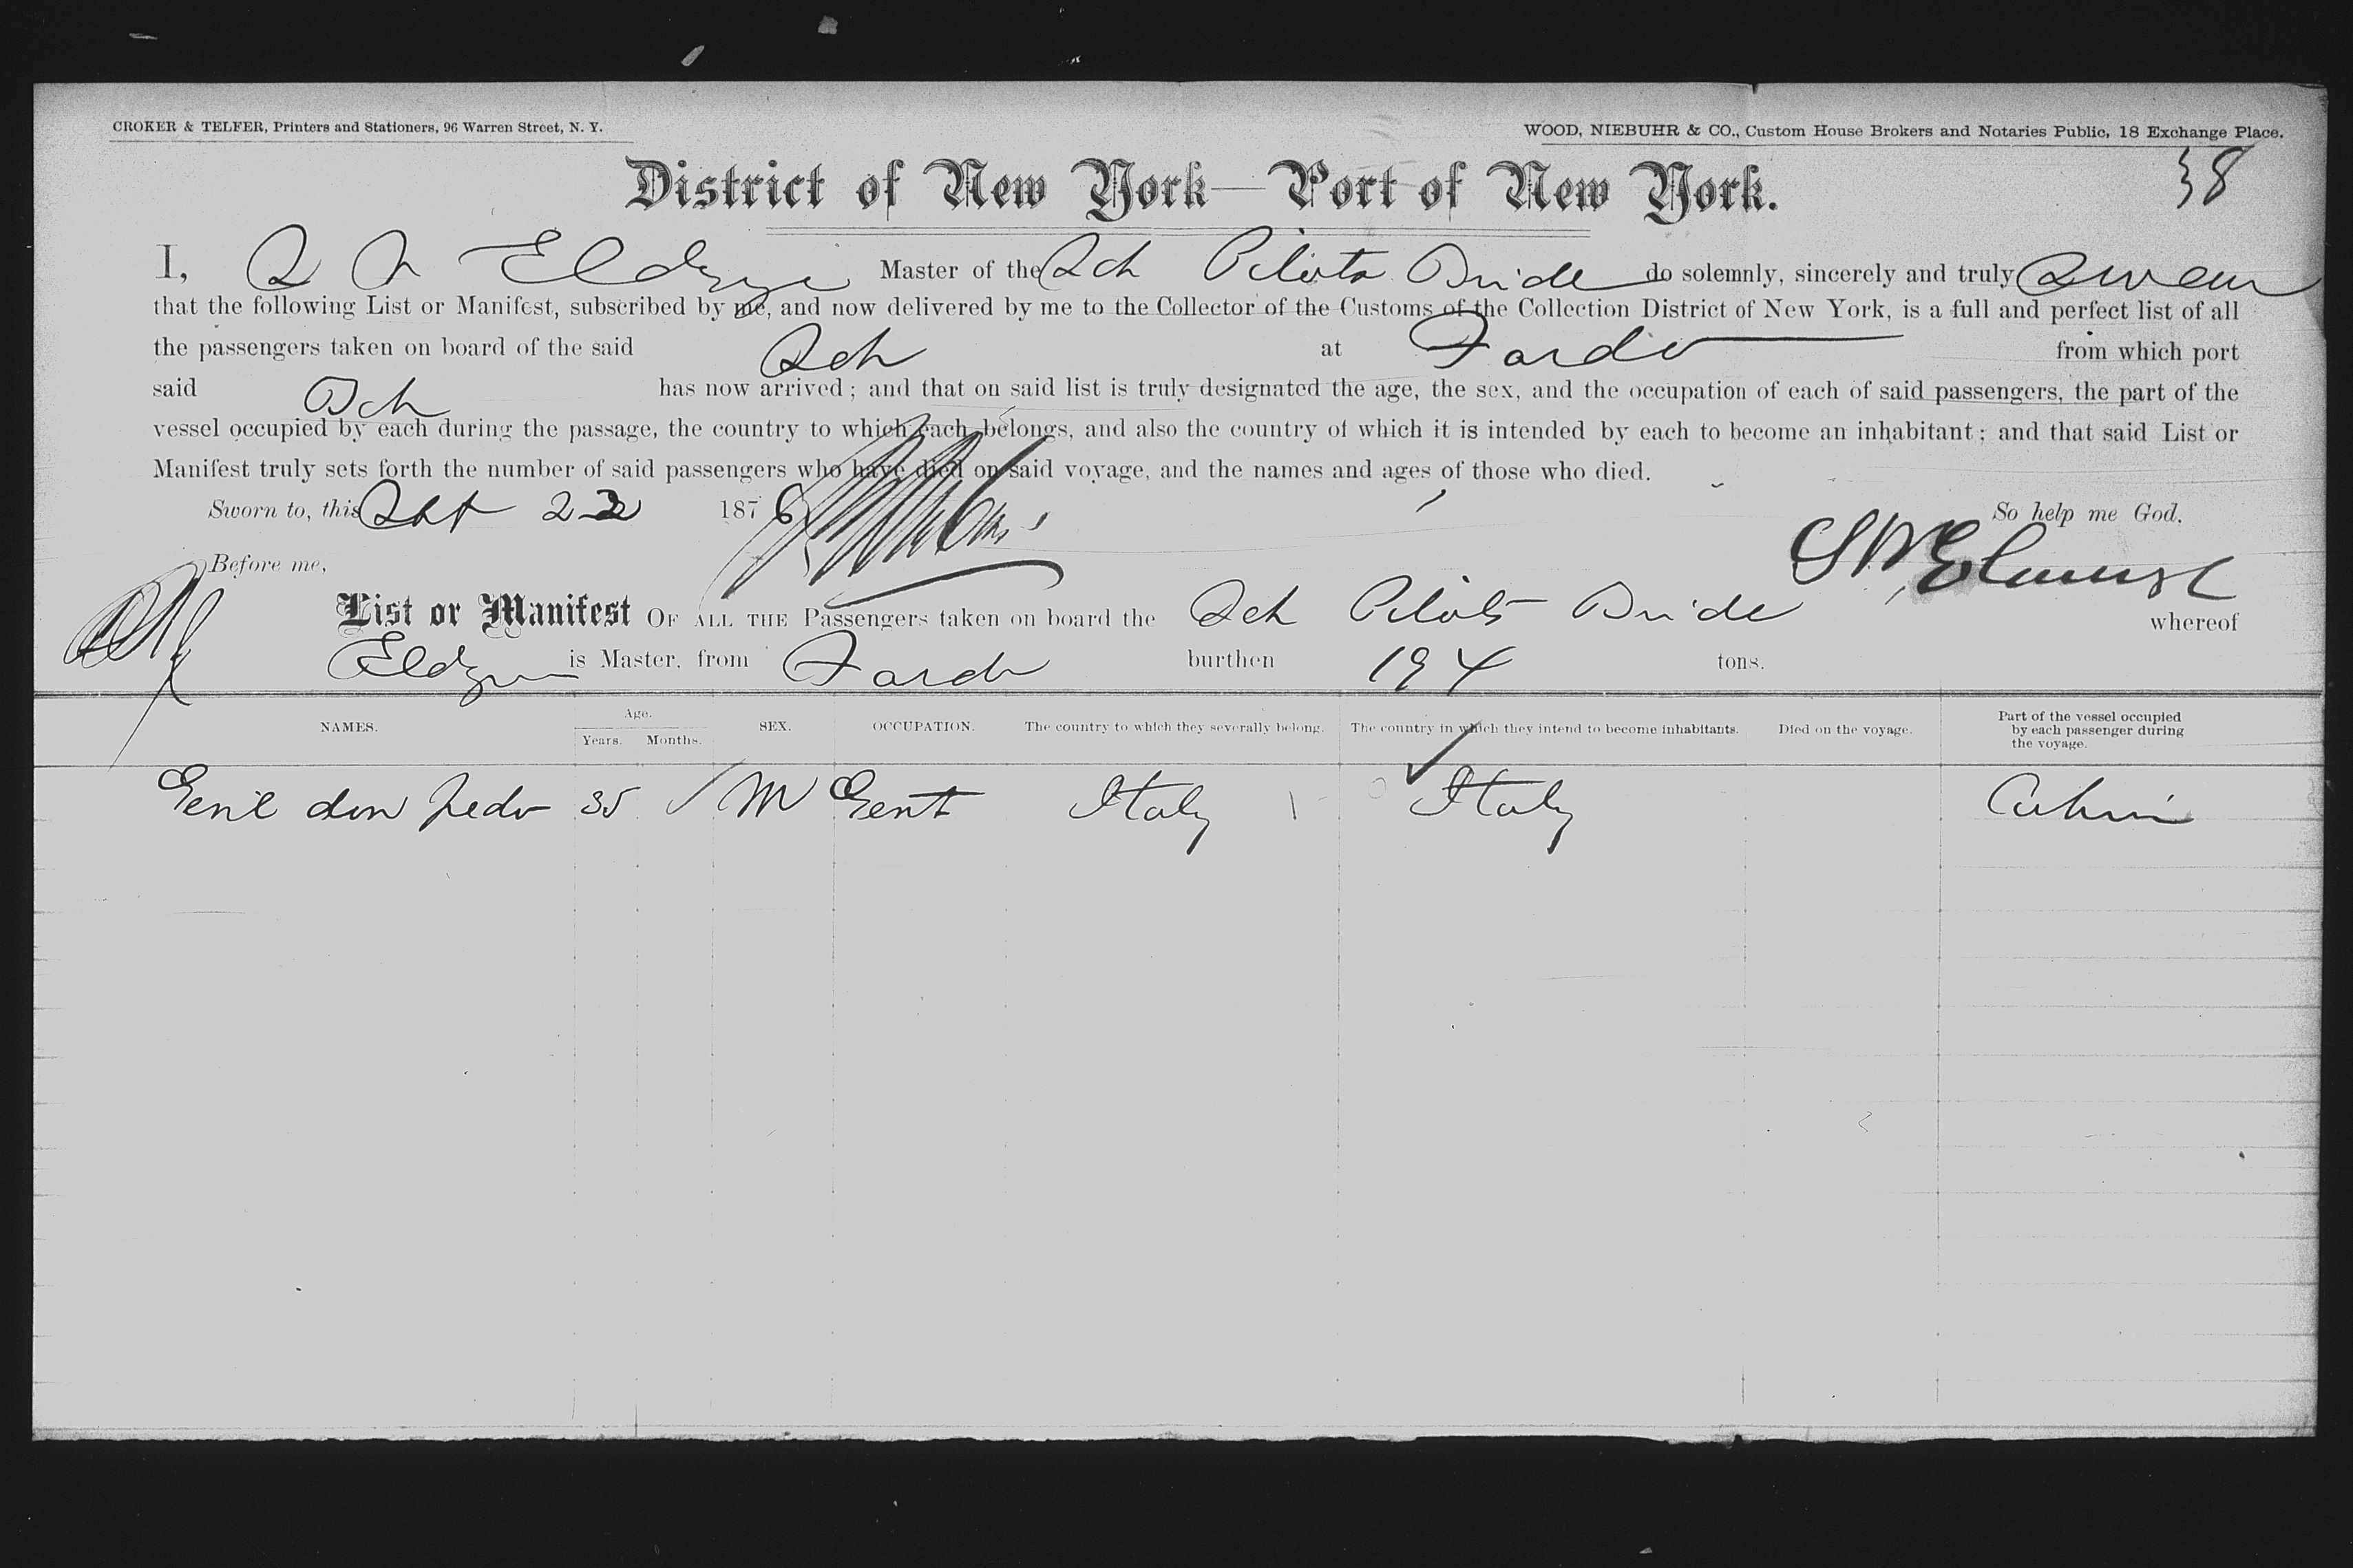 CROKER & TELFER, Printers and Stationers, 96 Warren Street, N. Y.
WOOD, NIEBUHR & CO., Custom House Brokers and Notaries Public, 18 Exchange Place.
38
District of New York—Port of New York.
I, Master of the Sch Pilots Bride do solemnly, sincerely and truly swear
that the following List or Manifest, subscribed by me, and now delivered by me to the Collector of the Customs of the Collection District of New York, is a full and perfect list of all
the passengers taken on board of the said Sch at from which port
said Sch has now arrived; and that on said list is truly designated the age, the sex, and the occupation of each of said passengers, the part of the
vessel occupied by each during the passage, the country to which each belongs, and also the country of which it is intended by each to become an inhabitant; and that said List or
Manifest truly sets forth the number of said passengers who have died on said voyage, and the names and ages of those who died.
Sworn to, this 22 1876 So help me God.
Before me,
List or Manifest OF ALL THE Passengers taken on board the Sch Pilots Bride whereof
is Master, from burthen 194 tons.
NAMES. Age. Years. Months. SEX. OCCUPATION. The country to which they severally belong. The country in which they intend to become inhabitants. Died on the voyage. Part of the vessel occupied by each passenger during the voyage.
don 35 M Gent Italy Italy Cabin